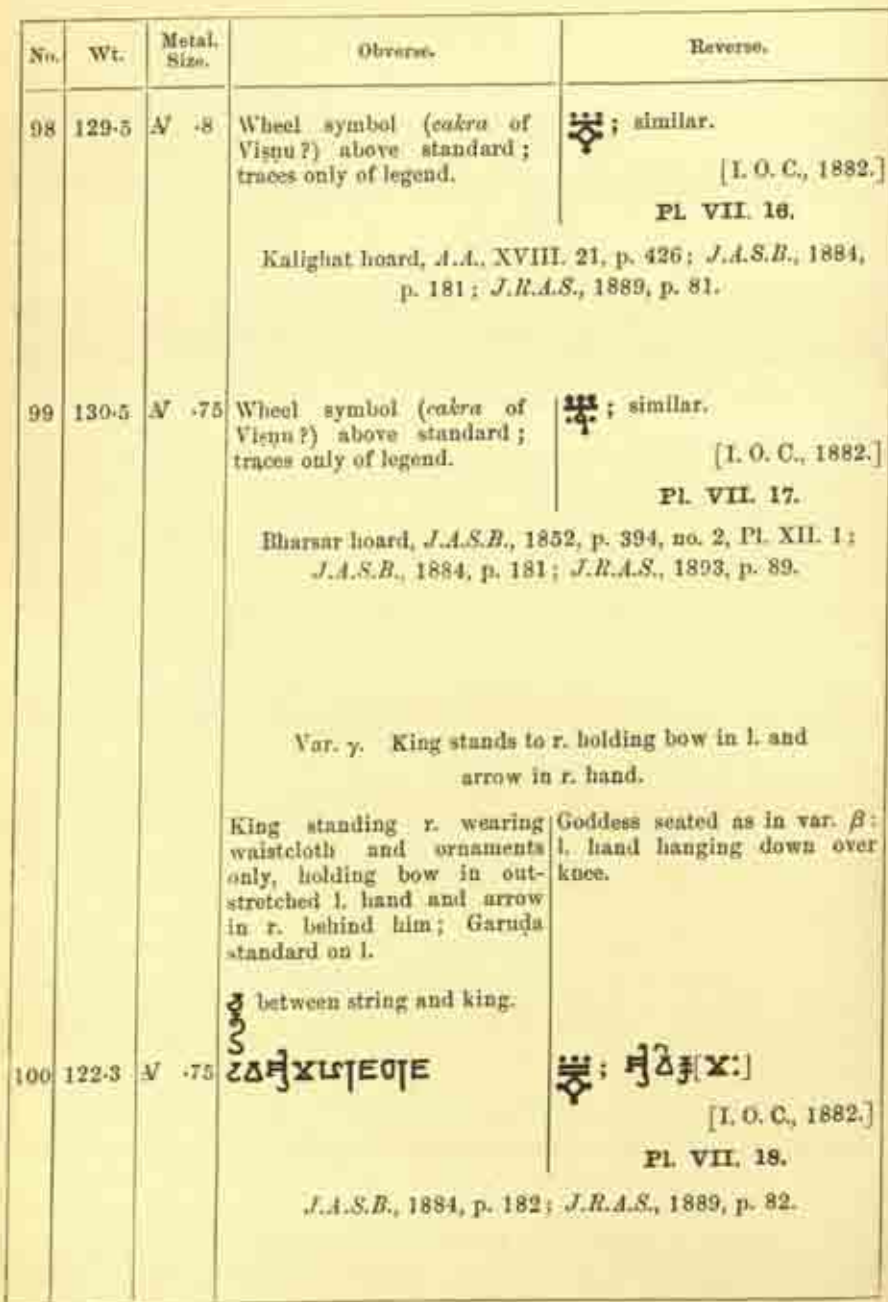 No. Wt. Metal. Size. Obverse. Reverse.
98 129·5 A/ ·8 Wheel symbol (cakra of
Viṣṇu?) above standard;
traces only of legend.
; similar.
[I. O. C., 1882.]
Pl. VII. 16.
Kalighat hoard, A.A., XVIII. 21, p. 426; J.A.S.B., 1884,
p. 181; J.R.A.S., 1889, p. 81.
99 130·5 A/ ·75 Wheel symbol (cakra of
Viṣṇu?) above standard;
traces only of legend.
; similar.
[I. O. C., 1882.]
Pl. VII. 17.
Bharsar hoard, J.A.S.B., 1852, p. 394, no. 2, Pl. XII. 1;
J.A.S.B., 1884, p. 181; J.R.A.S., 1893, p. 89.
Var. γ. King stands to r. holding bow in l. and
arrow in r. hand.
King standing r. wearing
waistcloth and ornaments
only, holding bow in out-
stretched l. hand and arrow
in r. behind him; Garuḍa
standard on l.
Goddess seated as in var. β:
l. hand hanging down over
knee.
between string and king.
100 122·3 A/ ·75
[I. O. C., 1882.]
Pl. VII. 18.
J.A.S.B., 1884, p. 182; J.R.A.S., 1889, p. 82.